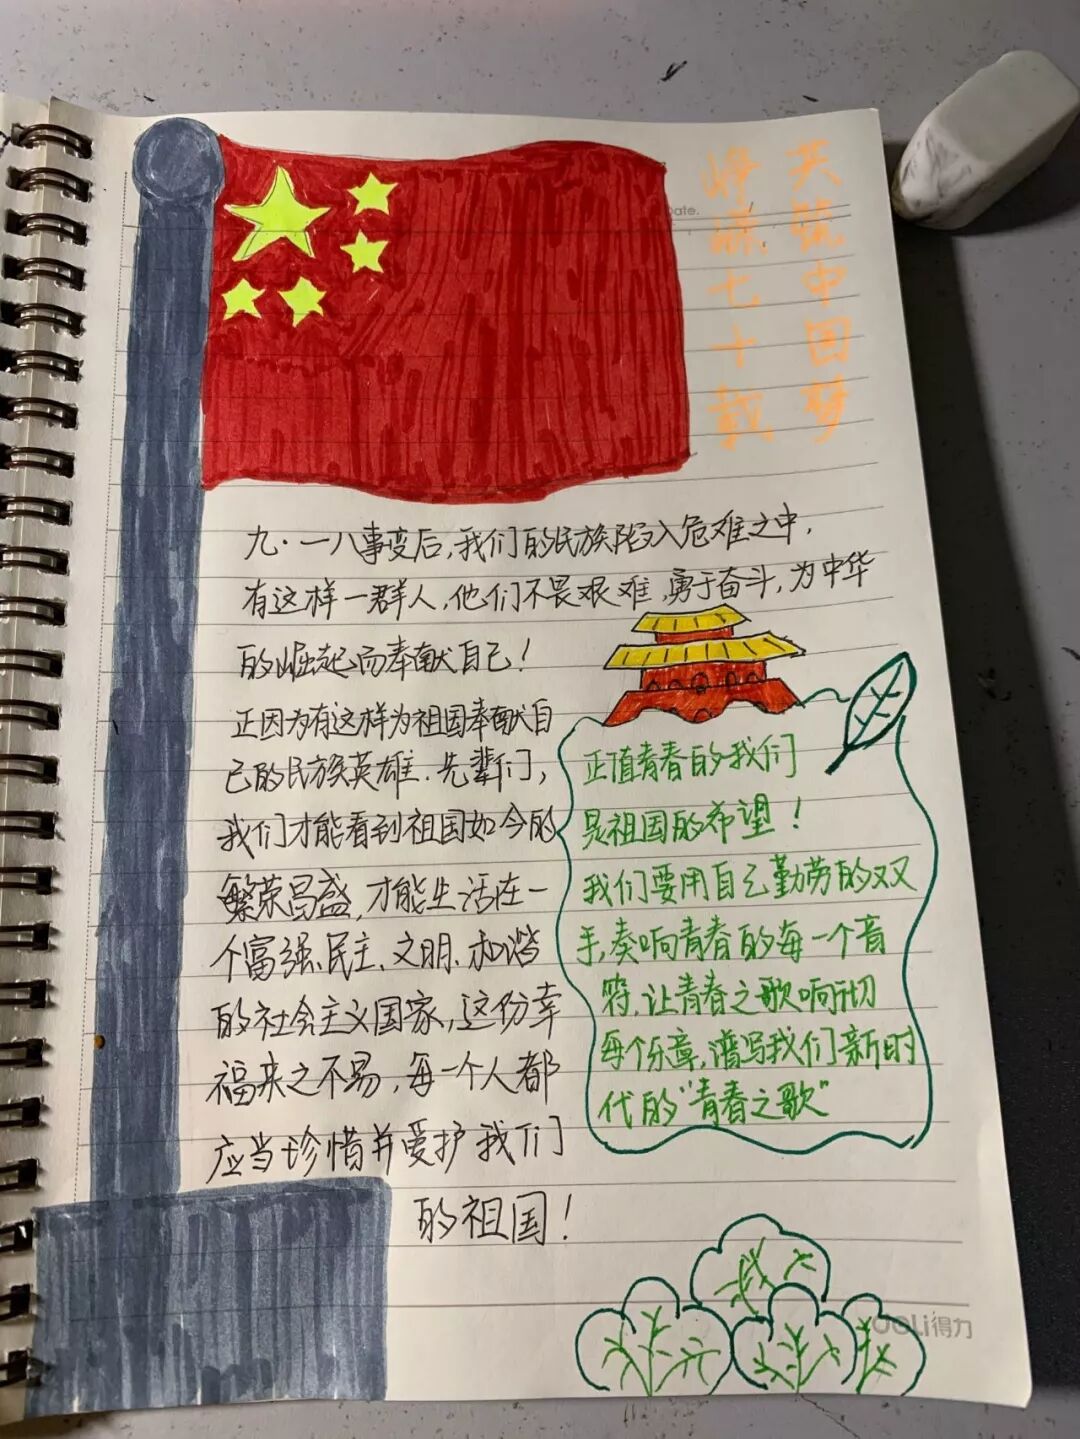 共筑中国梦
峥嵘七十载
Date.
九·一八事变后,我们的民族陷入危难之中,
有这样一群人,他们不畏艰难,勇于奋斗,为中华
的崛起而奉献自己!
正因为有这样为祖国奉献自
己的民族英雄、先辈们,
我们才能看到祖国如今的
繁荣昌盛,才能生活在一
个富强、民主、文明、和谐
的社会主义国家,这份幸
福来之不易,每一个人都
应当珍惜并爱护我们
的祖国!
正值青春的我们
是祖国的希望!
我们要用自己勤劳的双
手,奏响青春的每一个音
符,让青春之歌响彻
每个乐章,谱写我们新时
代的“青春之歌”
得力